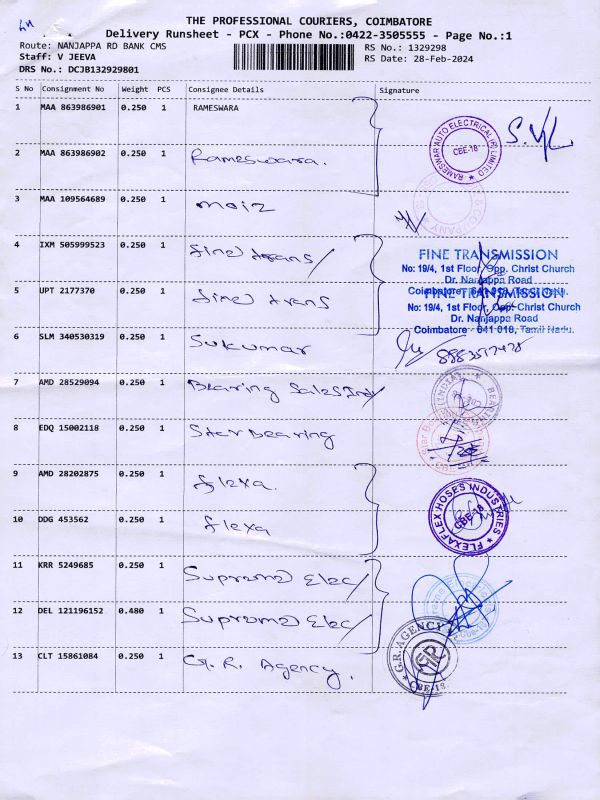 THE PROFESSIONAL COURIERS, COIMBATORE
Delivery Runsheet - PCX - Phone No.:0422-3505555 - Page No.:1
Route: NANJAPPA RD BANK CMS
RS No.: 1329298
Staff: V JEEVA
RS Date: 28-Feb-2024
DRS No.: DCJB132929801
S No Consignment No Weight PCS Consignee Details Signature
1 MAA 863986901 0.250 1 RAMESWARA
RAMESWAR AUTO ELECTRICAL (P) LIMITED
CBE-18
2 MAA 863986902 0.250 1 Rameswara.
3 MAA 109564689 0.250 1 moiz
& COMPANY
4 IXM 505999523 0.250 1 fine trans/
FINE TRANSMISSION
No: 19/4, 1st Floor, Opp. Christ Church
Dr. Nanjappa Road
Coimbatore - 641 018, Tamil Nadu.
5 UPT 2177370 0.250 1 fine trans
FINE TRANSMISSION
No: 19/4, 1st Floor, Opp. Christ Church
Dr. Nanjappa Road
Coimbatore - 641 018, Tamil Nadu.
6 SLM 340530319 0.250 1 Sukumar
7 AMD 28529094 0.250 1 Bearing Sales Ind/
BEARING (INDIA)
8 EDQ 15002118 0.250 1 Star Bearing
9 AMD 28202875 0.250 1 flexa.
FLEXAFLEX HOSES INDUSTRIES
CBE-18
10 DDG 453562 0.250 1 flexa
11 KRR 5249685 0.250 1 Supreme Elec/
12 DEL 121196152 0.480 1 Supreme Elec/
13 CLT 15861084 0.250 1 G.R. Agency.
G.R. AGENCY
GR
CBE-18